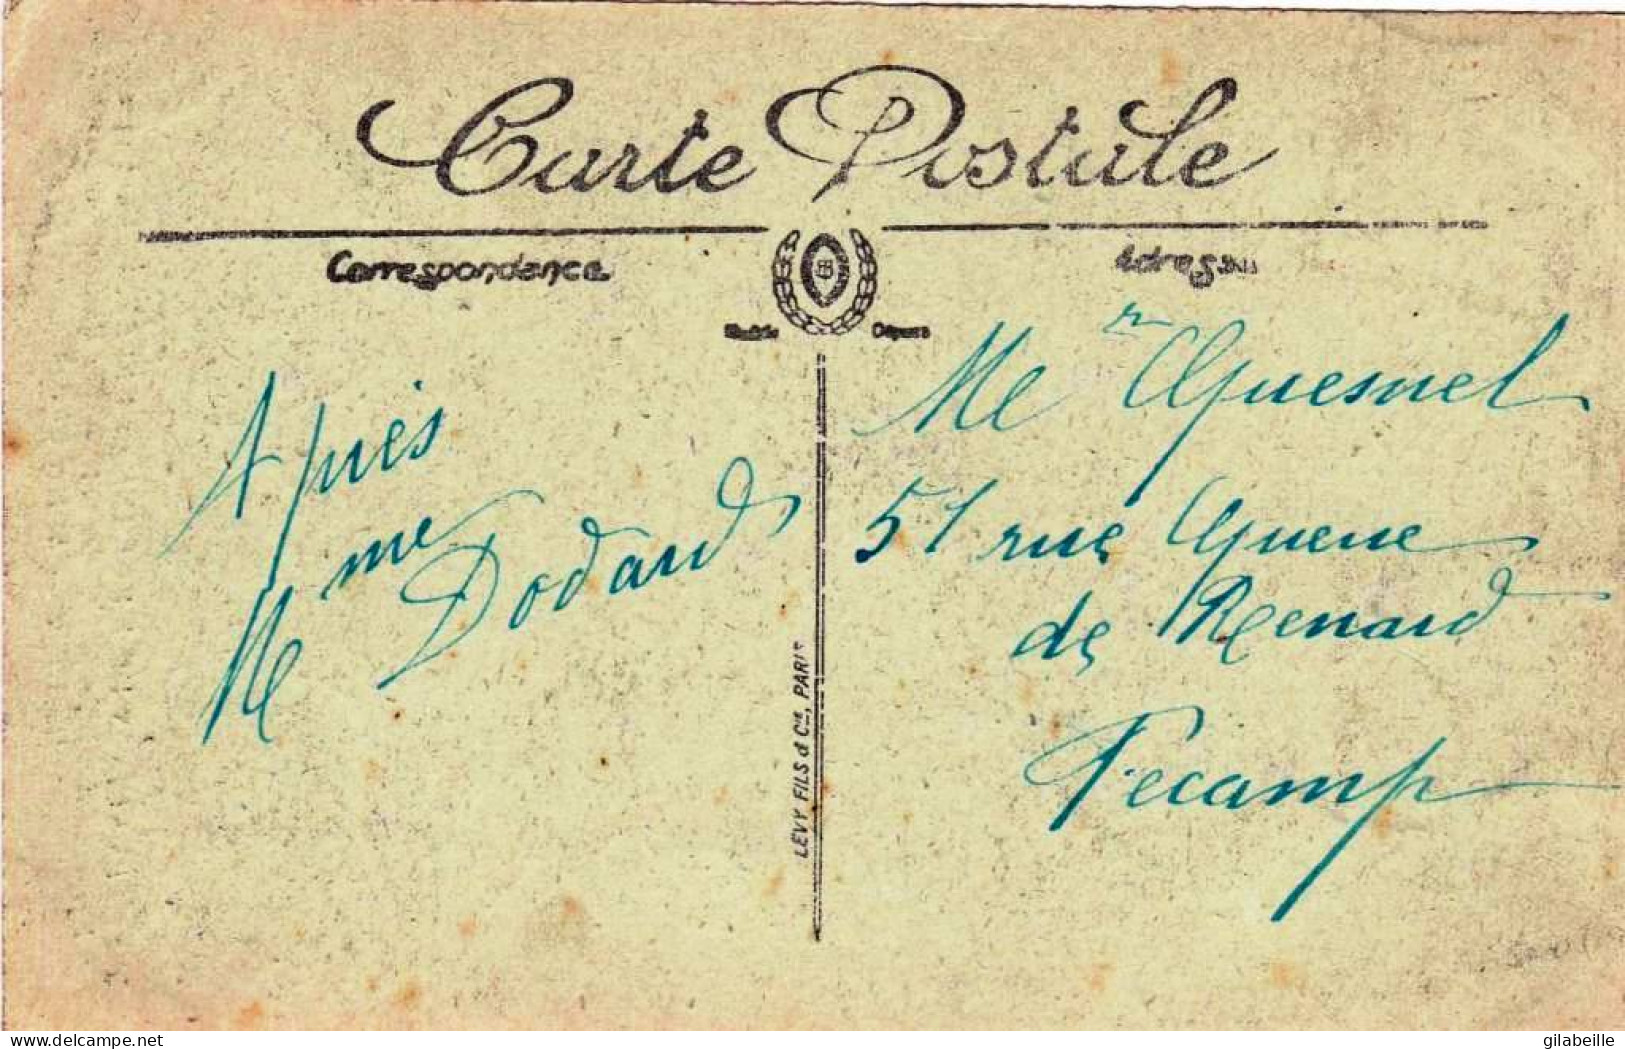 Carte Postale
Correspondance
Adresse
Modèle Déposé
Après
Mme Dodard
LEVY FILS & Cie, PARIS
Mr Quesnel
51 rue Queue
de Renard
Fecamp
www.delcampe.net
gilabeille